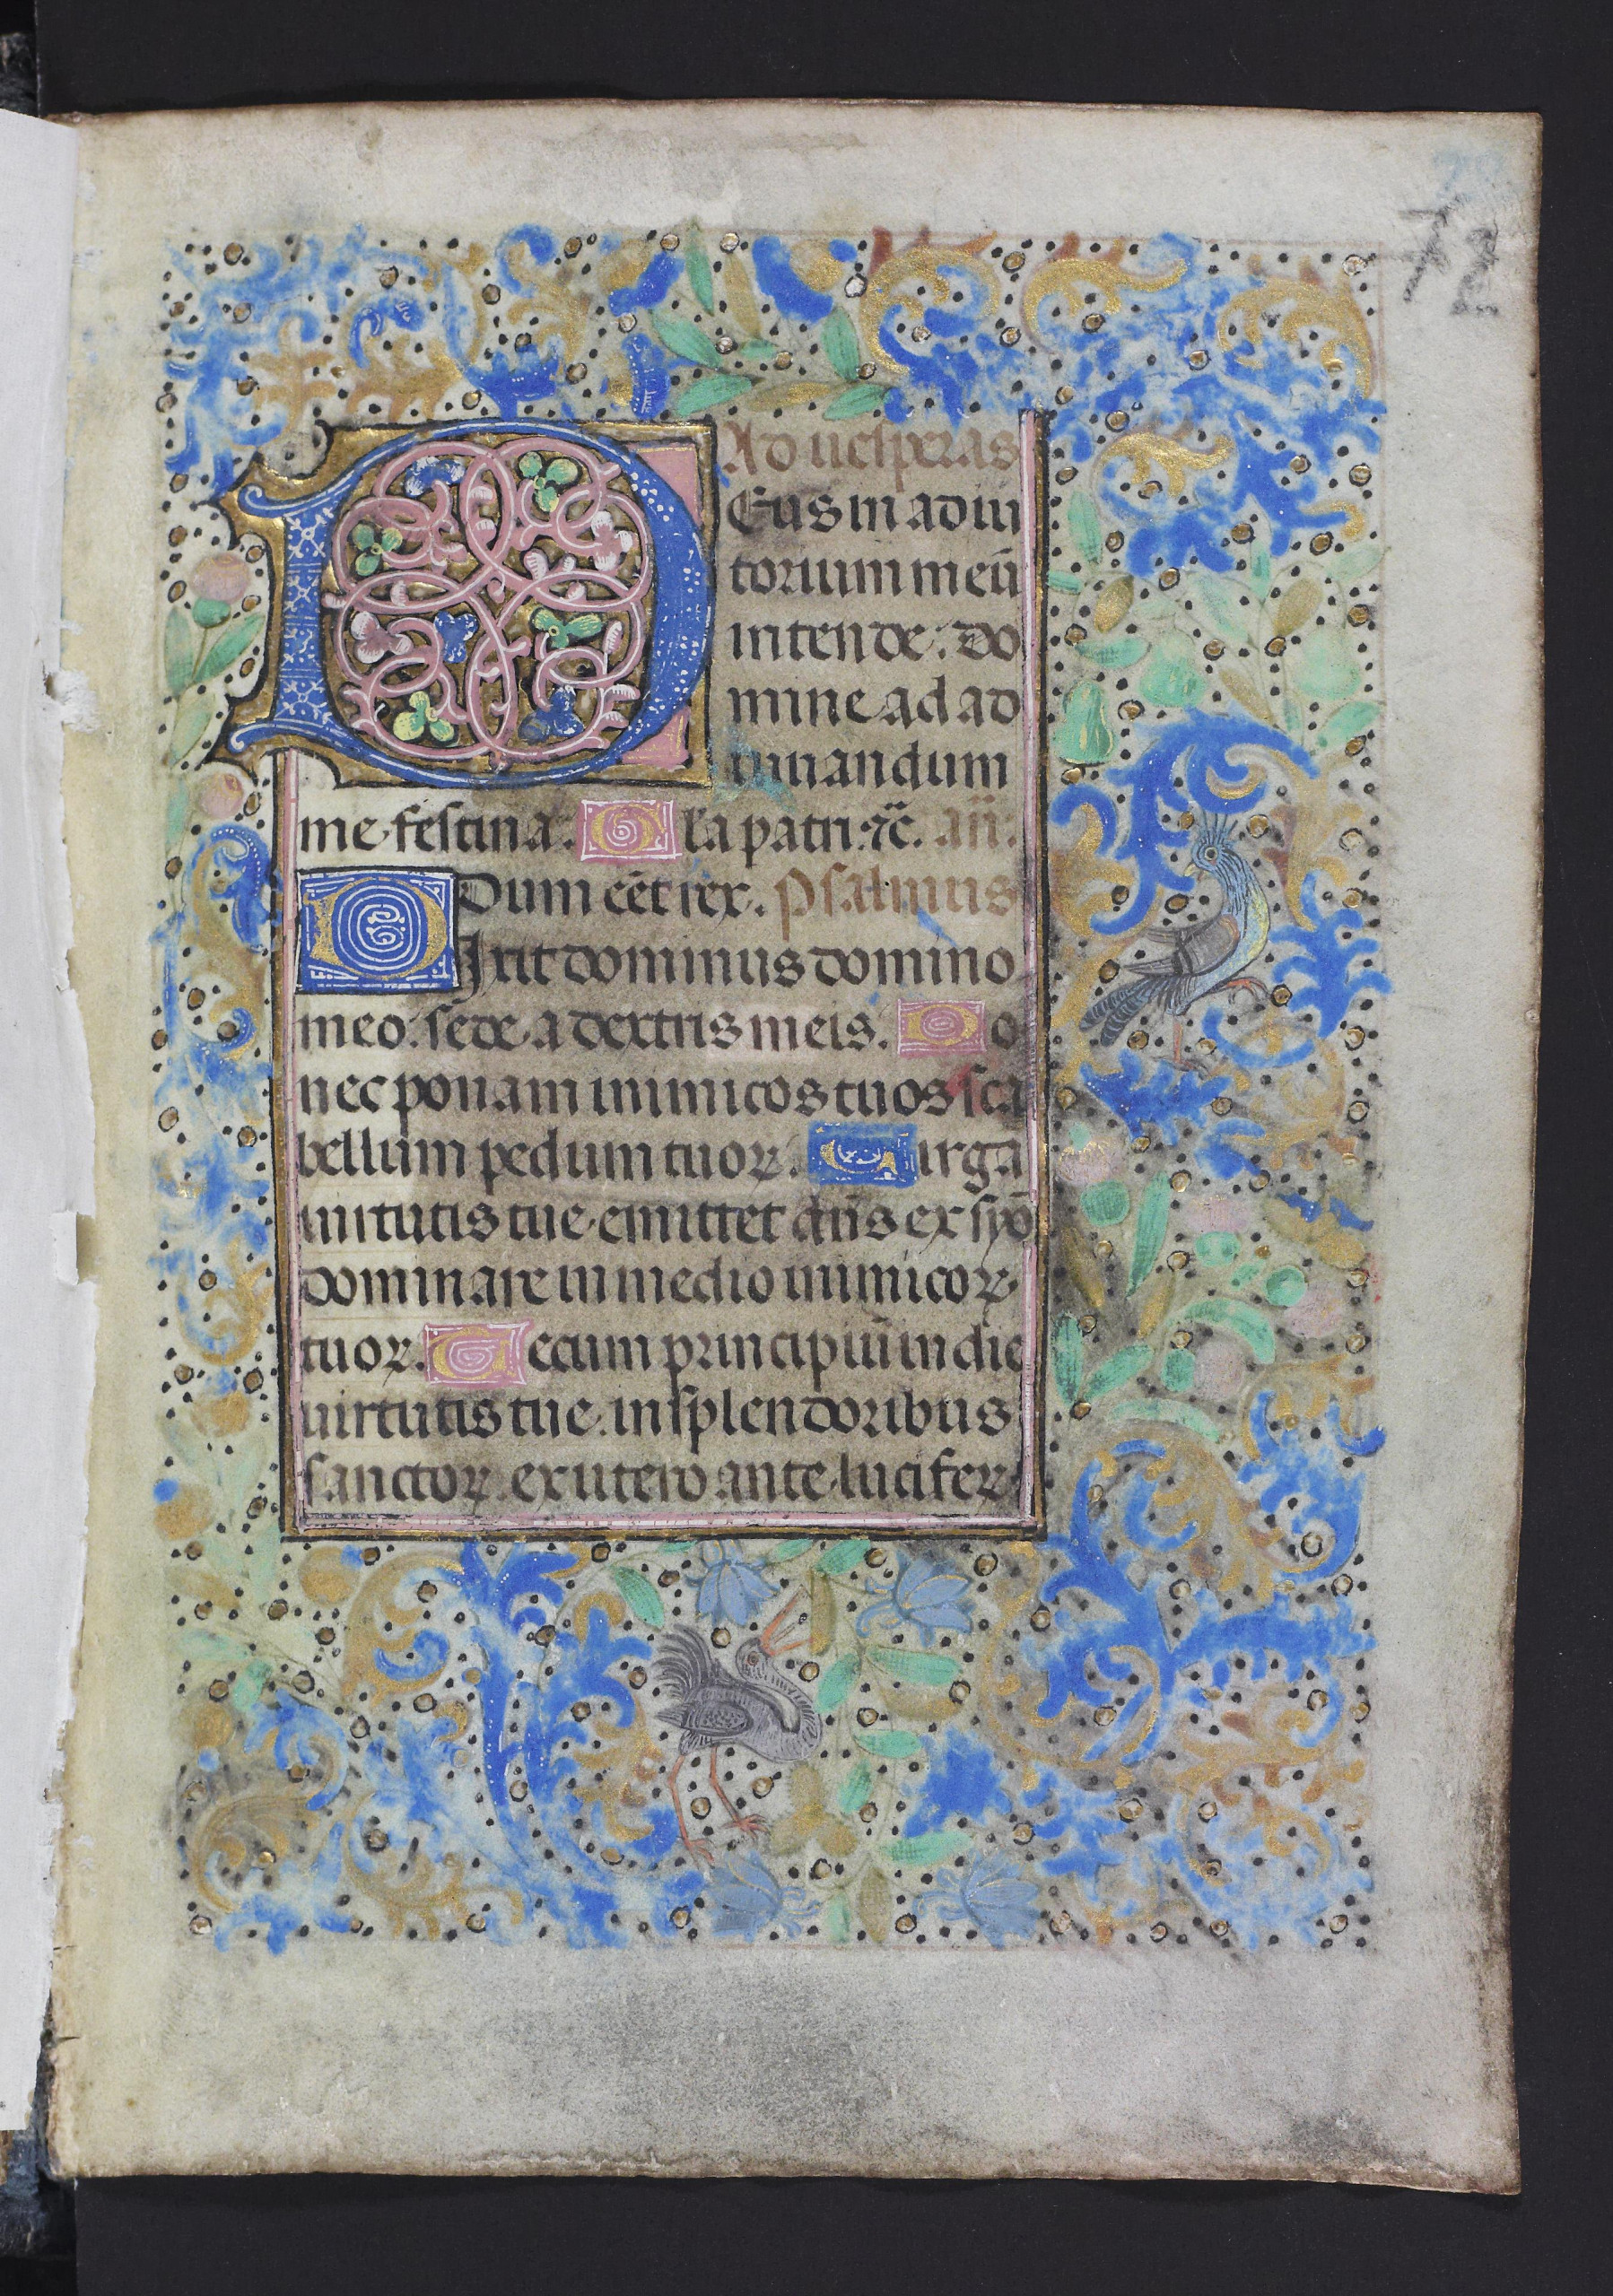 72
Ad uesperas
DEus in adiu
torium meū
intende. do
mine ad ad
iuuandum
me festina. Gl'ia patri. ⁊c̄. añ.
Dum eēt rex. Psalmus
DIxit dominus domino
meo. sede a dextris meis. Do
nec ponam inimicos tuos sca
bellum pedum tuoꝝ. Uirga
uirtutis tue emittet dn̄s ex syō
dominare in medio inimicoꝝ
tuoꝝ. Tecum principiū in die
uirtutis tue. in splendoribus
sanctoꝝ. ex utero ante luciferꝝ